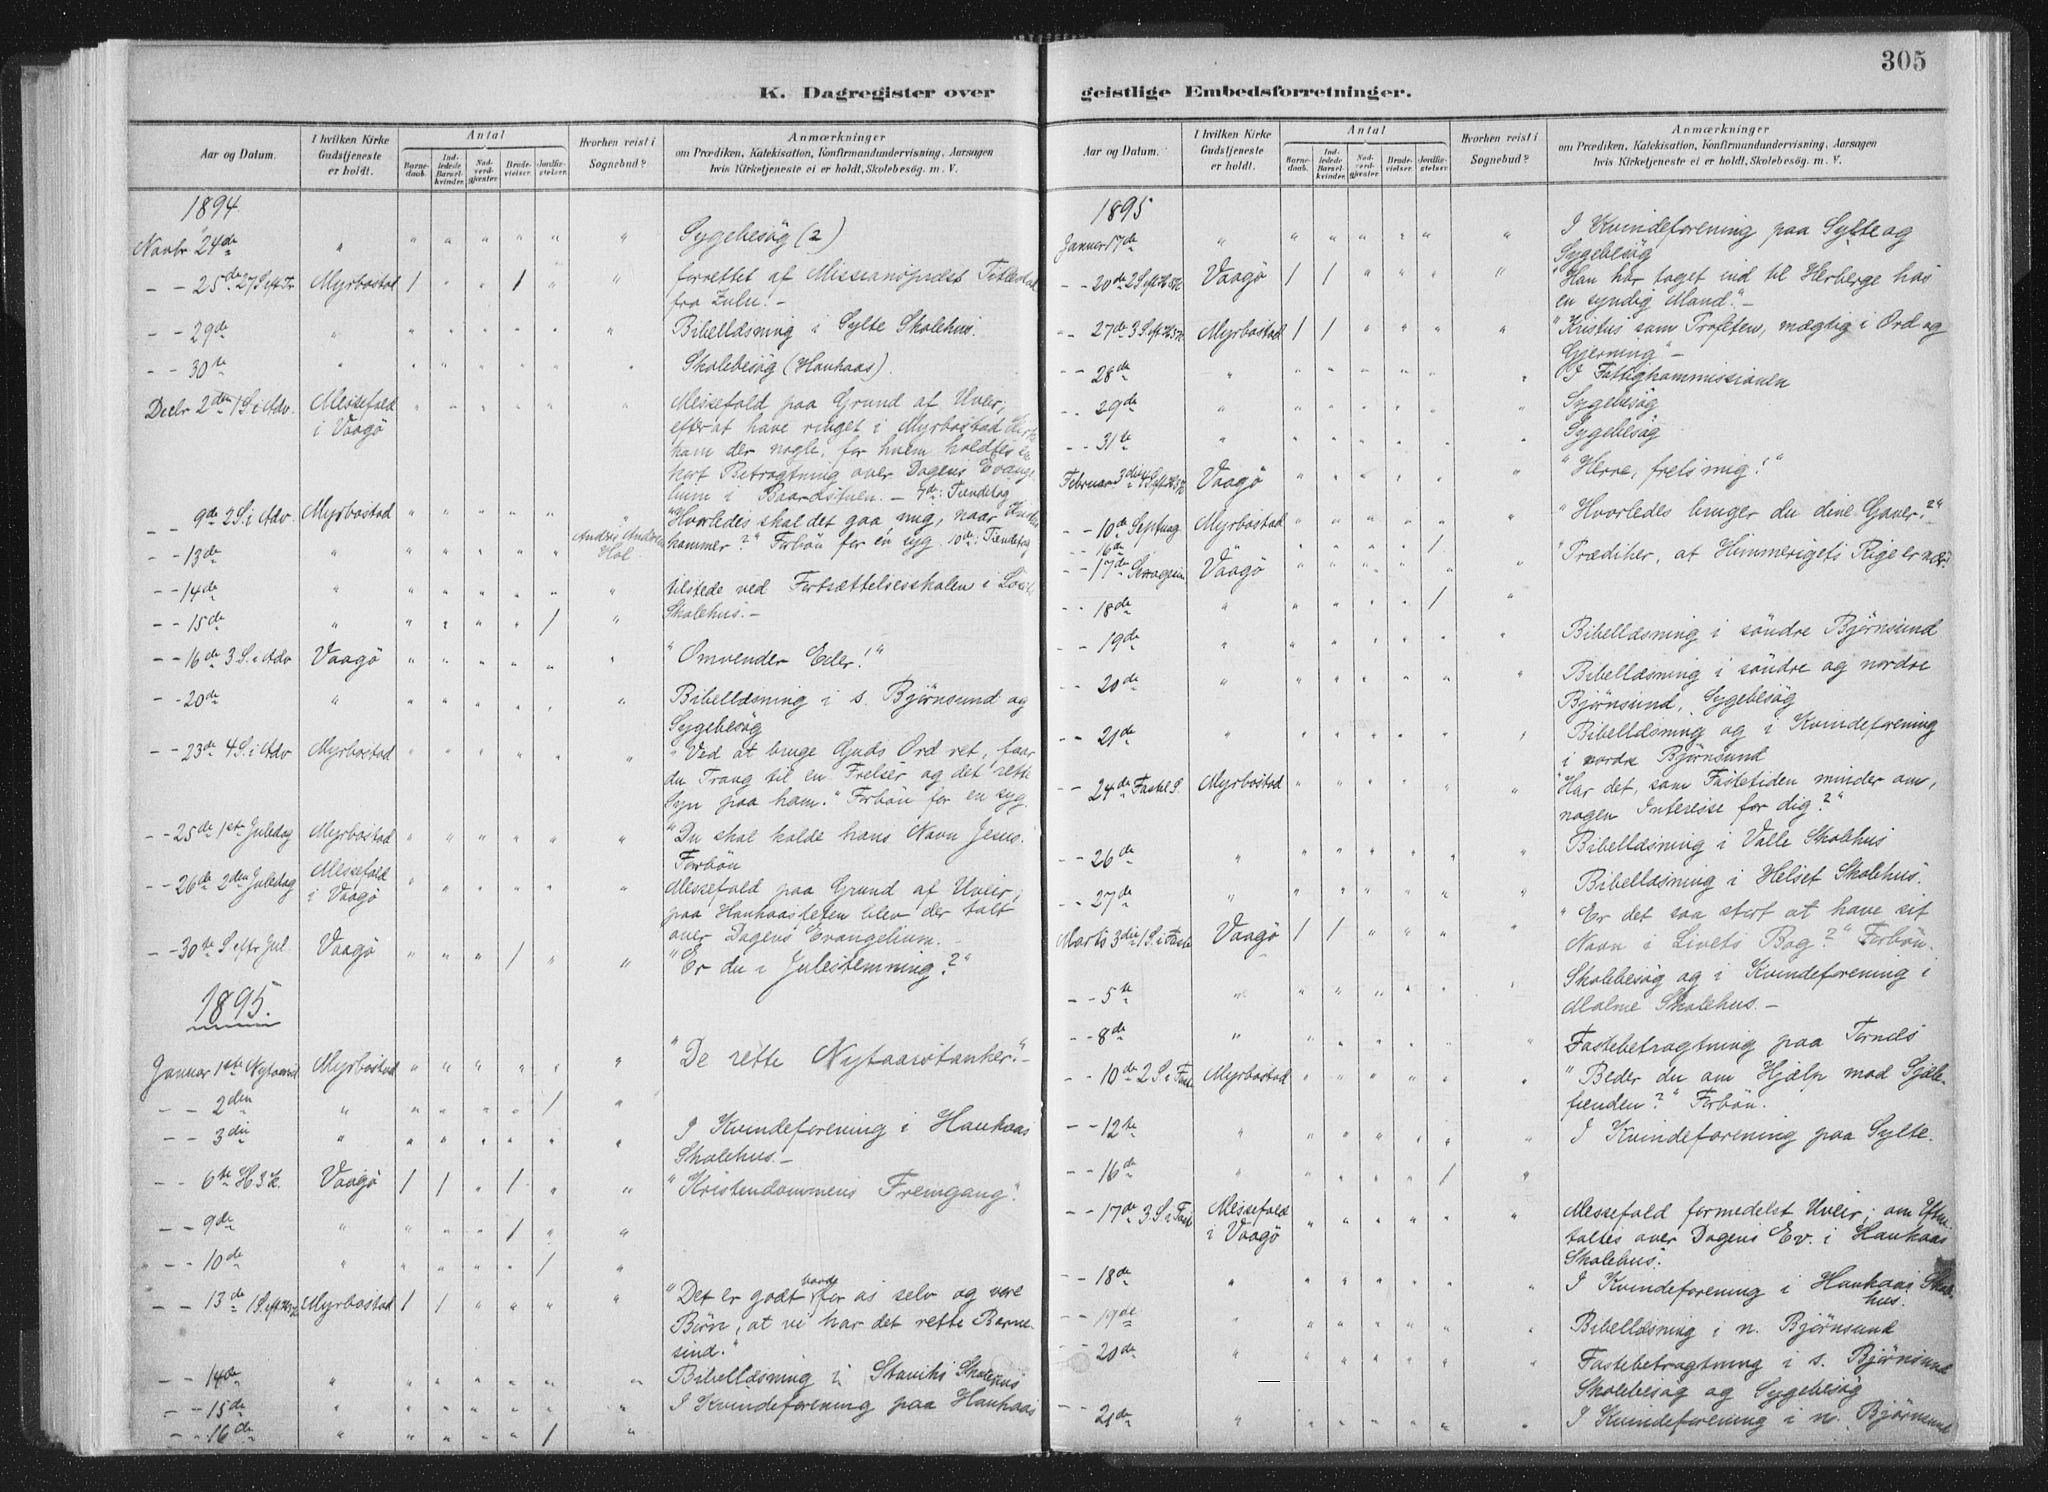 305
K. Dagregister over geistlige Embedsforretninger.
Aar og Datum. I hvilken Kirke Gudstjeneste er holdt. Antal Barnedaab. Indledede Barselkvinder. Nadverdgjester. Brudevielser. Jordfæstelser. Hvorhen reist i Sognebud? Anmærkninger om Prædiken, Katekisation, Konfirmandundervisning, Aarsagen hvis Kirketjeneste ei er holdt, Skolebesøg. m. V.
1894
Novbr 24de " " " " " " " Sygebesög (2)
- - 25de 27 S eft Tr Myrbostad / " " / " " forrettet af Missionspræst Titlestad
fra Zulu. -
- - 29de " " " " " " " Bibellæsning i Sylte Skolehus.
- - 30te " " " " " " " Skolebesög (Haukaas).
Decbr 2den 1 S. i Adv. Messefald " " " " " " Messefald paa Grund af Uveir;
i Vaagö efterat have ringet i Myrbostad Kirke
kom der nogle, for hvem holdtes en
kort Betragtning over Dagens Evange
lium i Baardstuen. - 7de: Tiendetag
- - 9de 2 S. i Adv. Myrbostad " " " " " " "Hvorledes skal det gaa mig, naar
- - 13de " " " " " " Andrés Hol kommer?" Forbön for en syg. 10de: Tiendetag
- - 14de " " " " " " " tilstede ved Fortsættelsesskolen i
- - 15de " " " " " / " Skolehus. -
- - 16de 3 S. i Adv Vaagö " " " " " " "Omvender Eder!"
- - 20de " " " " " " " Bibellæsning i s. Björnsund og
Sygebesög
- - 23de 4 S. i Adv Myrbostad " " " " " " "Ved at bruge Guds Ord ret, faar
du Trang til en Frelser og det rette
Syn paa ham." Forbön for en syg.
- - 25de 1ste Juledag Myrbostad " " " " " " "Du skal kalde hans Navn Jesus.
Forbön
- - 26de 2den Juledag Messefald " " " " " " Messefald paa Grund af Uveir;
i Vaagö paa Haukaasleten blev der talt
over Dagens Evangelium.
- 30te S. eftr Jul. Vaagö " " " / " " "Er du i Julestemning?"
1895.
Januar 1ste Nytaarsd Myrbostad " " " " " " "De rette Nytaarstanker." -
- - 2den " " " " " / "
- - 3die " " " " " " " I Kvindeforening i Haukaas
Skolehus. -
- - 6te H3K. Vaagö / / " / " " "Kristendommens Fremgang".
- - 9de " " " " / " "
- - 10de " " " " " / "
- - 13de 1 S eft H3K Myrbostad / / " " " " "Det er godt baade for os selv og vore
Börn, at vi har det rette Barne-
sind."
- - 14de " " " " " " " Bibellæsning i Staviks Skolehus
- - 15de " " " " " " " I Kvindeforening paa Haukaas
- - 16de " " " " " / "
Aar og Datum. I hvilken Kirke Gudstjeneste er holdt. Antal Barnedaab. Indledede Barselkvinder. Nadverdgjester. Brudevielser. Jordfæstelser. Hvorhen reist i Sognebud? Anmærkninger om Prædiken, Katekisation, Konfirmandundervisning, Aarsagen hvis Kirketjeneste ei er holdt, Skolebesøg. m. V.
1895
Januar 17de " " " " " " " I Kvindeforening paa Sylte og
Sygebesög
- - 20de 2 S eft H3K Vaagö / / " " " " "Han har taget ind til Herberge hos
en syndig Mand." -
- - 27de 3 S eft H3K Myrbostad / / " " " " "Kristus som Profeten, mægtig i Ord og
Gjerning" -
- - 28de " " " " " " " I Fattigkommissionen
- - 29de " " " " " " " Sygebesög
- - 31te " " " " " " " Sygebesög
Februar 3die 4 S eft H3K Vaagö " " " " " " "Herre, frels mig!"
- - 10de Septuag Myrbostad " " " " " " "Hvorledes bruger du dine Gaver?"
- - 16de " " " " /
- - 17de Vaagö " " " " " " "Prædiker, at Himmerigets Rige er nær.
- - 18de " " " " " / "
- - 19de " " " " " " " Bibellæsning i söndre Björnsund
- - 20de " " " " " " " Bibellæsning i söndre og nordre
Björnsund, Sygebesög
- - 21de " " " " " " " Bibellæsning og i Kvindeforening
i nordre Björnsund
- - 24de Fastel S. Myrbostad " " " " " " "Har det, som Fastetiden minder om,
nogen Interesse for dig?"
- - 26de " " " " " " " Bibellæsning i Valle Skolehus
- - 27de " " " " " " " Bibellæsning i Helset Skolehus.
Marts 3die 1 S. i Faste Vaagö / / " " " " "Er det saa stort at have sit
Navn i Livets Bog?" Forbön.
- - 5te " " " " " " " Skolebesög og i Kvindeforening i
Malme Skolehus. -
- - 8de " " " " " " " Fastebetragtning paa Tornes
- - 10de 2 S. i Faste Myrbostad " " " " " " "Beder du om Hjælp mod Sjæle-
fienden?" Forbön.
- - 12te " " " " " " " I Kvindeforening paa Sylte.
- - 16de " " " " " / "
- - 17de 3 S. i Faste Messefald " " " " " " Messefald formedelst Uveir; om Eftm.
i Vaagö taltes over Dagens Ev. i Haukaas
Skolehus.
- - 18de " " " " " " " I Kvindeforening i Haukaas Skole
hus.
- - 19de " " " " " " " Bibellæsning i n. Björnsund
- - 20de " " " " " " " Fastebetragtning i s. Björnsund
Skolebesög og Sygebesög
- - 21de " " " " " " " I Kvindeforening i n. Björnsund